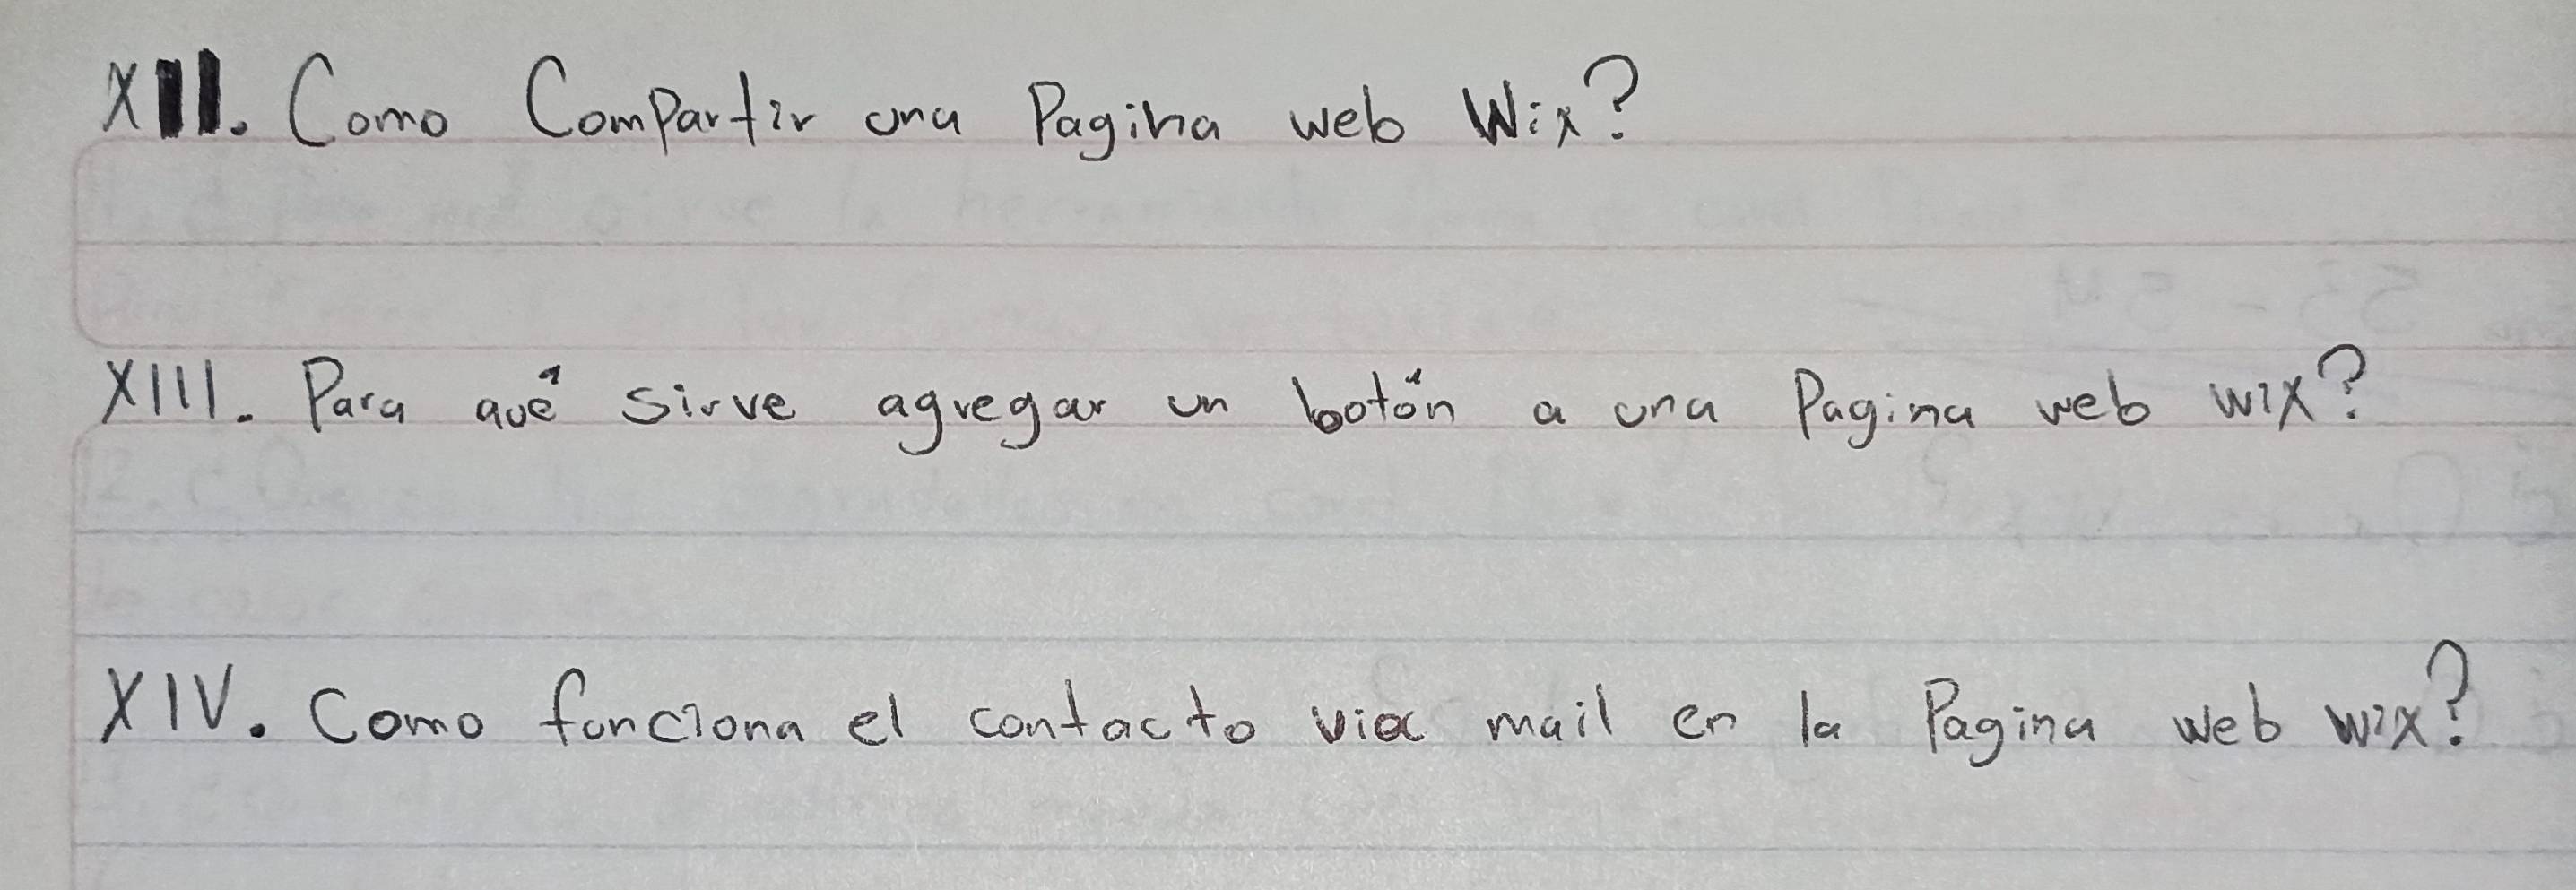 XII. Como Compartir una Pagina web Wix?
XIII. Para qué sirve agregar un botón a una Pagina web wix?
XIV. Como funciona el contacto via mail en la Pagina web wix?